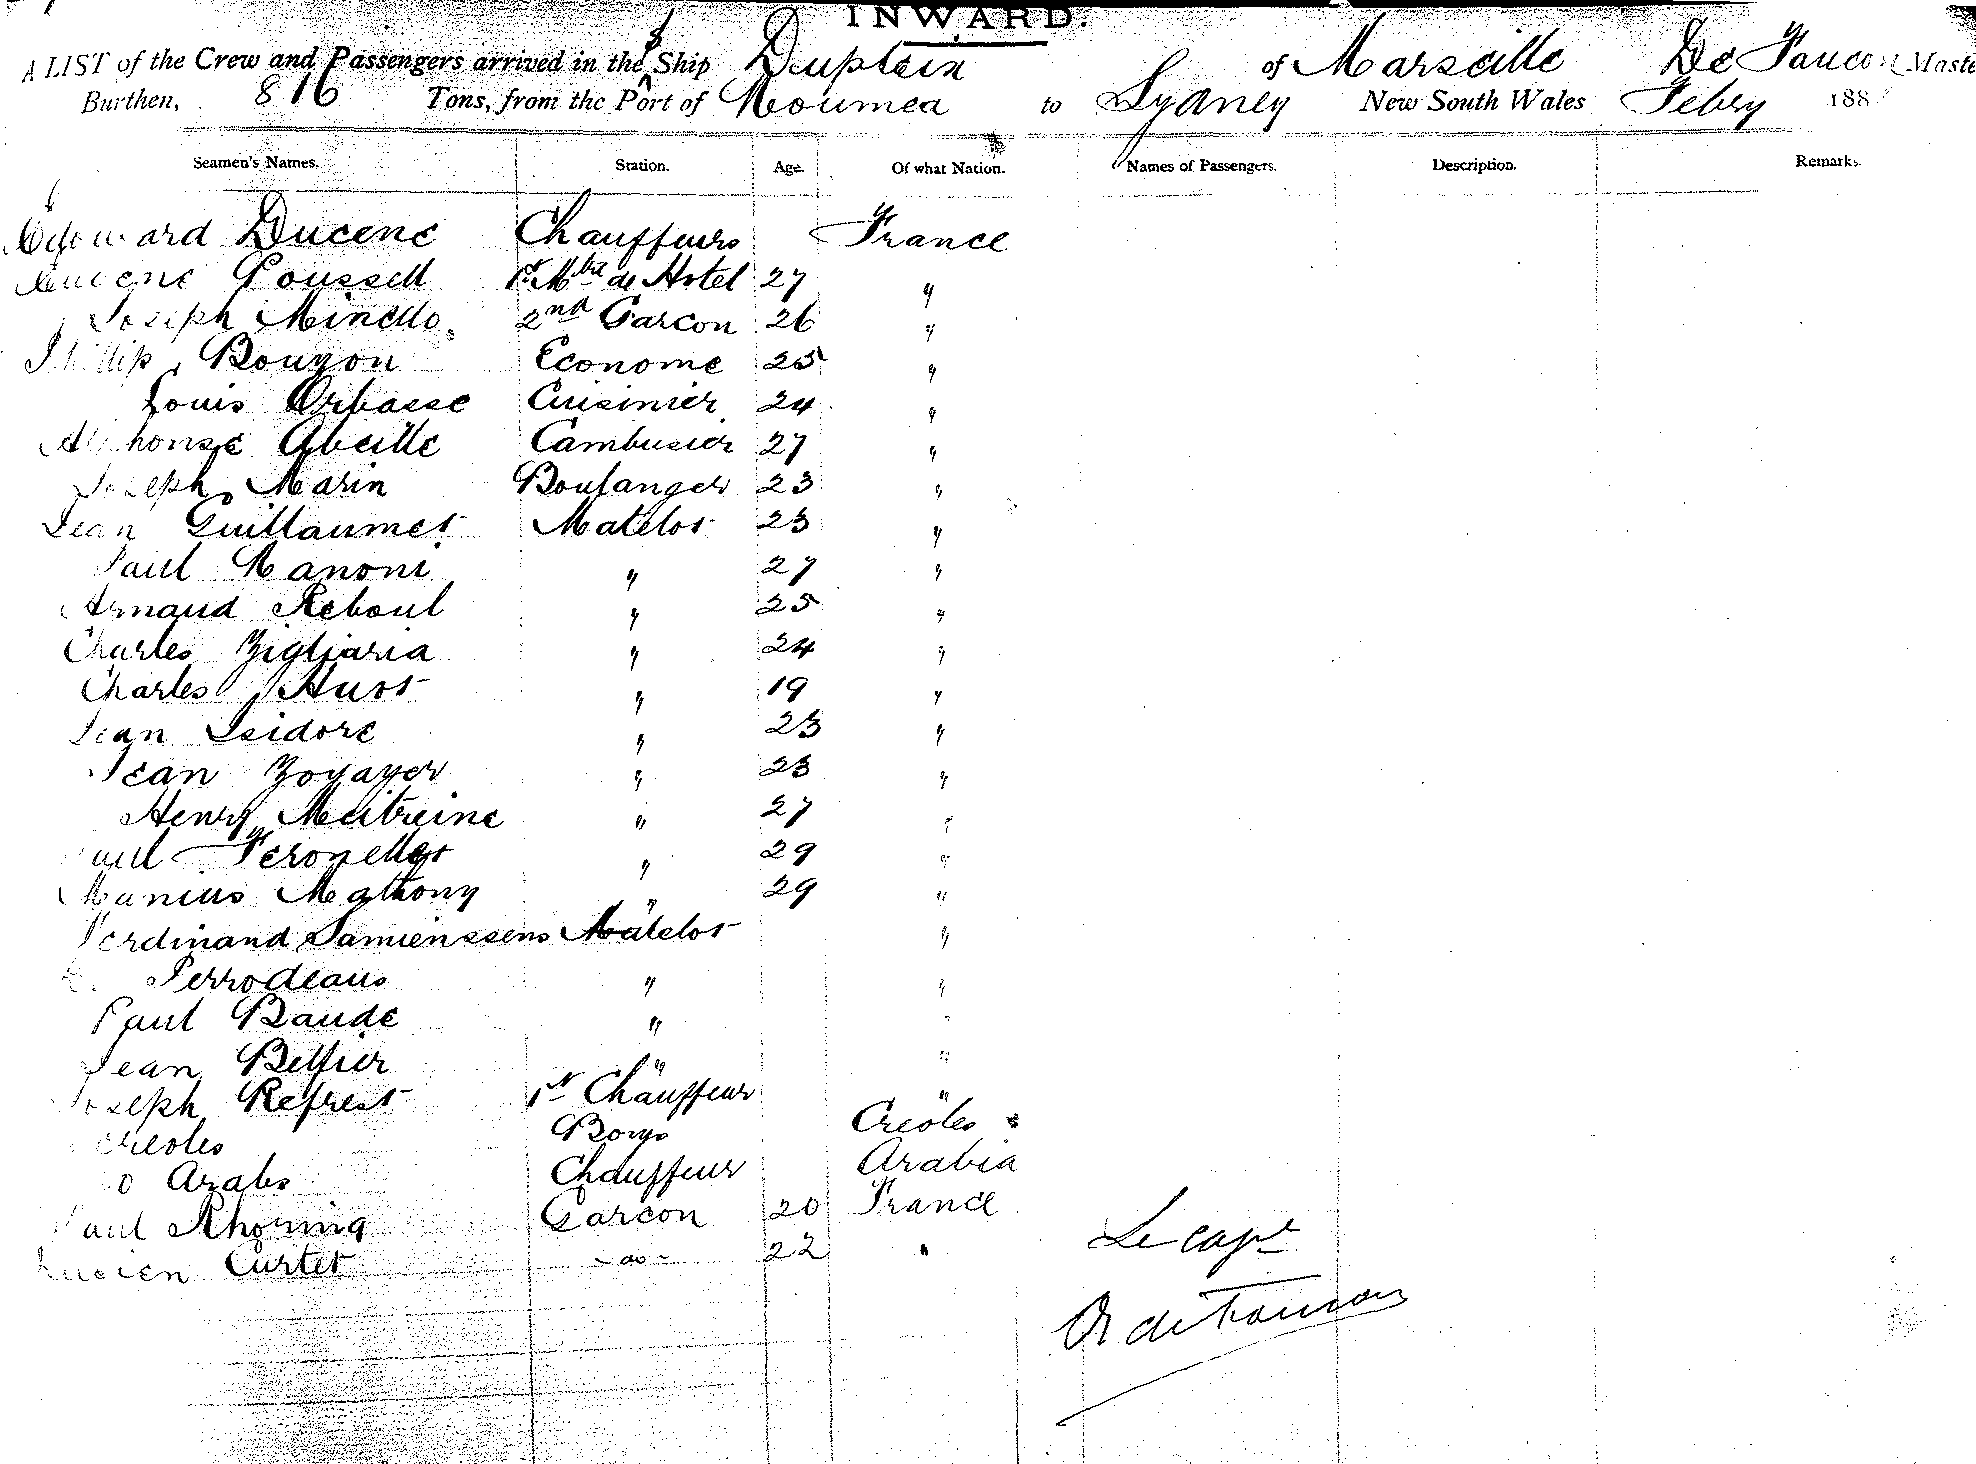 INWARD.
A LIST of the Crew and Passengers arrived in the S Ship Dupleix of Marseille De Faucon Master
Burthen, 816 Tons, from the Port of Noumea to Sydney New South Wales Febry 188
Seamen's Names. Station. Age. Of what Nation. Names of Passengers. Description. Remarks.
Edouard Ducene Chauffeurs France
Eugene Poussell 1r Mtre de Hotel 27 "
Joseph Minello 2nd Garcon 26 "
Phillip Bougon Econome 25 "
Louis Orbasse Cuisinier 24 "
Alphonse Abeille Cambusier 27 "
Joseph Marin Boulanger 23 "
Jean Guillaumet Matelot 23 "
Paul Nanoni " 27 "
Arnaud Reboul " 25 "
Charles Zigliaria " 24 "
Charles Huot " 19 "
Jean Isidore " 23 "
Jean Zoyayer " 23 "
Henry Meitreine " 27 "
Paul " 29 "
Marius Mathony " 29 "
Ferdinand Samienssens Matelot "
Perrodeaus " "
Paul Baude " "
Jean Bellier " "
Joseph Refrest 1r Chauffeur "
Creoles Boys Creoles
Arabs Chauffeur Arabia
Paul Rhoning Garcon 20 France
Lucien Curtet -do- 22 "
Le capne
de Faucon